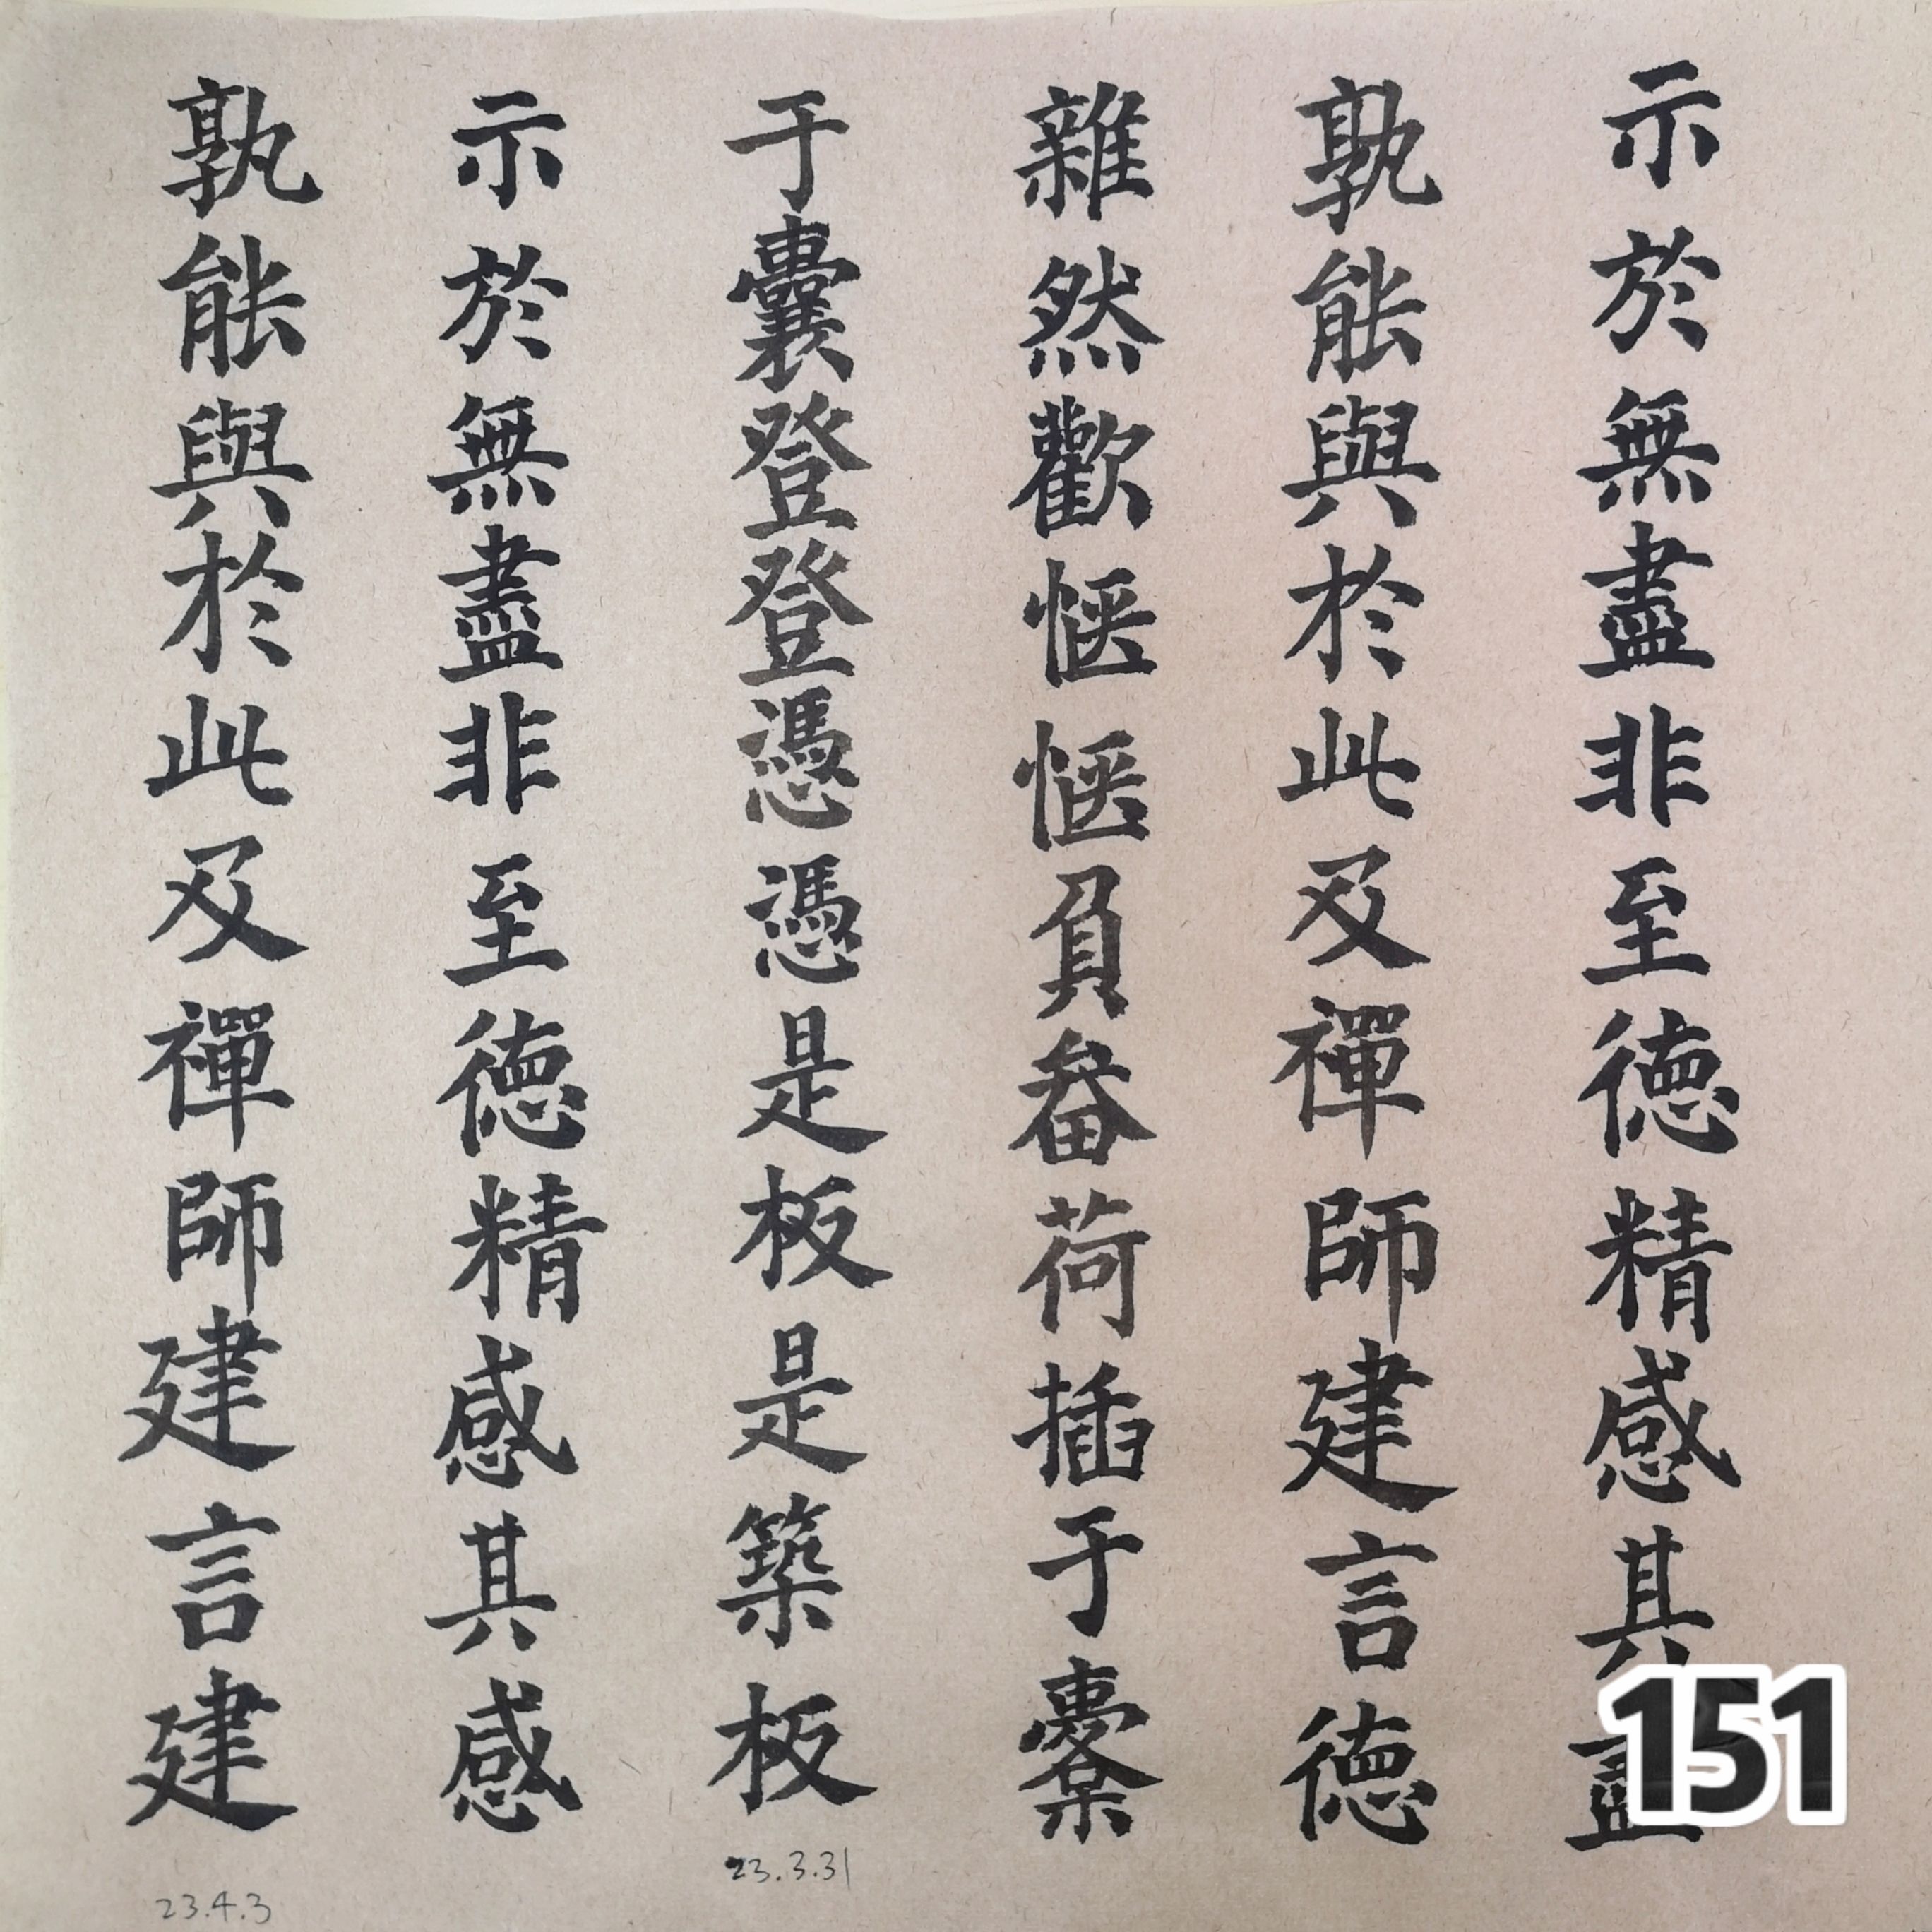 示於無盡非至德精感其盡
孰能與於此及禪師建言德
雜然歡愜愜負畚荷插于橐
于囊登登憑憑是板是築板
示於無盡非至德精感其感
孰能與於此及禪師建言建
23.3.31
23.4.3
151